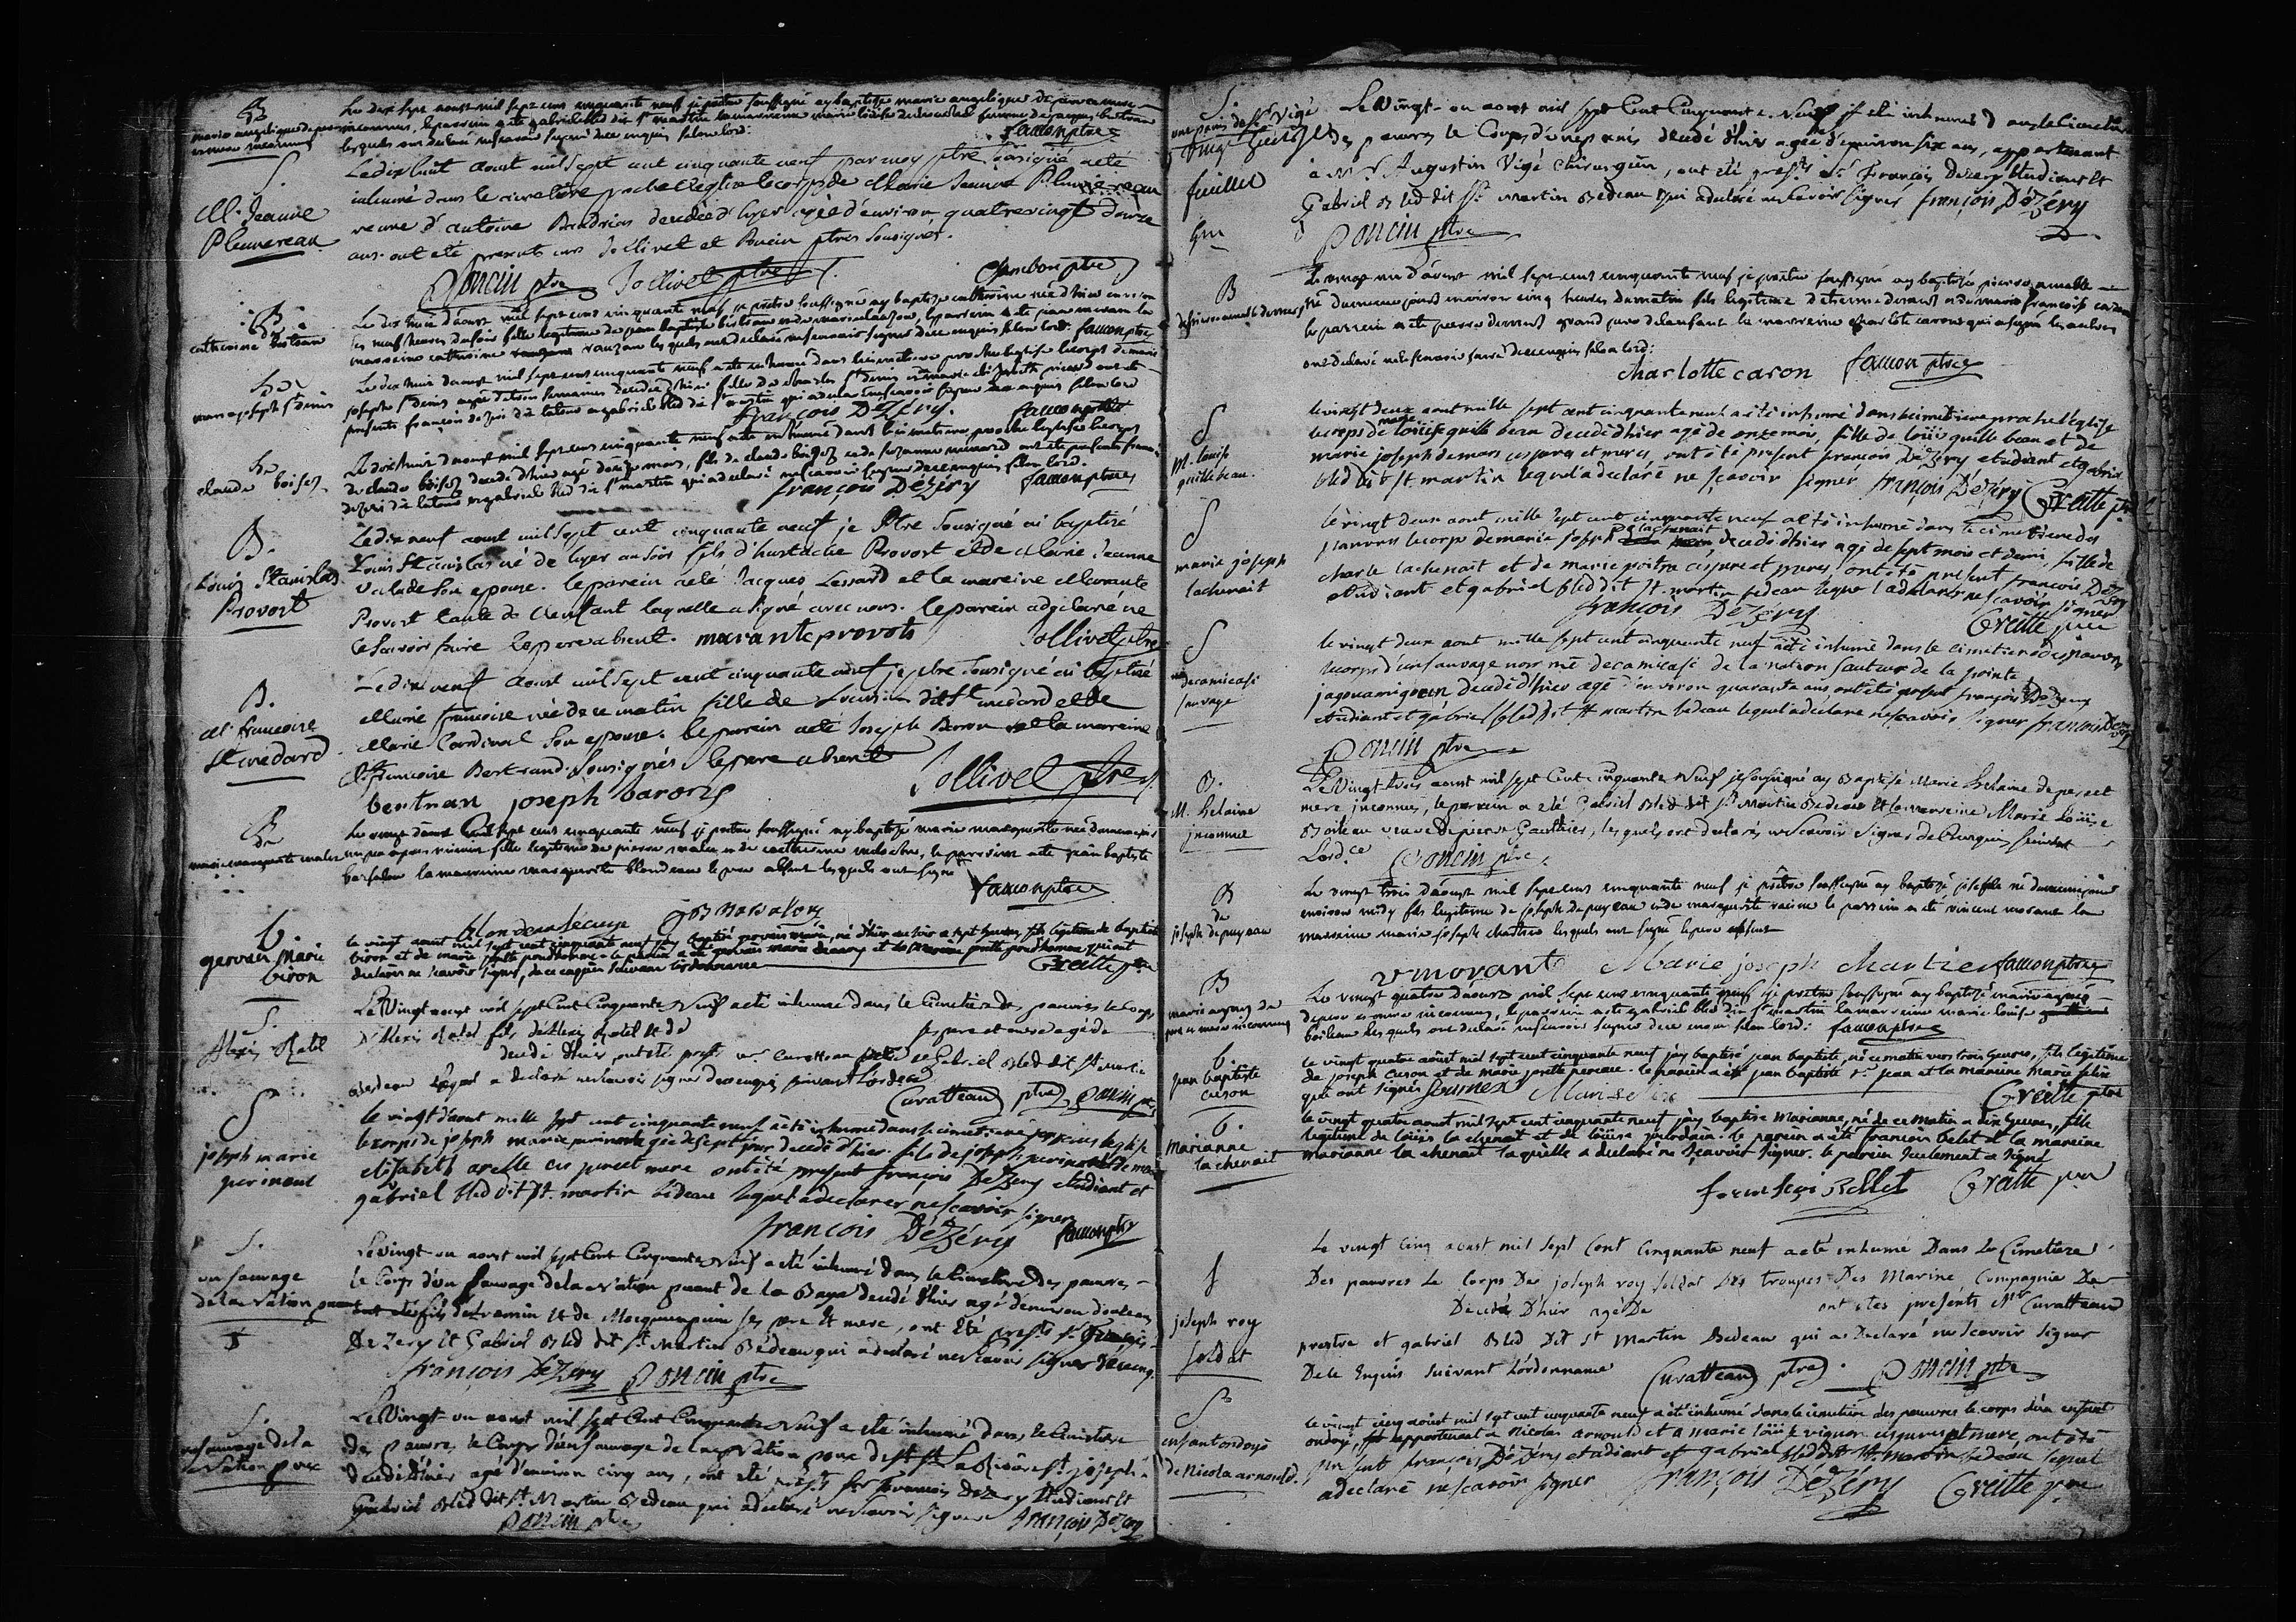 B
marie angelique de pere
et mere inconnus
Le dix sept aoust mil sept cens cinquante neuf je pretre soussigné ay baptisé marie angelique de pere et mere
inconnus, le parrein a ete gabriel bled dit st martin la marreine marie louise femme de jacques bertran
lesquels ont declaré ne scavoir signer de ce enquis selon lord:
faucon ptre
S.
M. Jeanne
Pluvereau
Le dix huit aout mil sept cent cinquante neuf par moy ptre sousigné a eté
inhumé dans le cimetiere proche l'eglise le corps de Marie Jeanne Pluvereau
veuve d'antoine decedée d'hyer agée d'environ quatre vingt douze
ans. ont eté presents mrs Jollivet et Poncin ptres sousignés.
Poncin ptre Jollivet ptre Chambon ptre
B
catherine bertran
Le dix huit d'aoust mil sept cens cinquante neuf je pretre soussigné ay baptisé catherine née d'hier environ
les neuf heures du soir fille legitime de jean baptiste bertran et de marie
marreine catherine lesquels ont declaré ne scavoir signer de ce enquis selon lord: faucon ptre
S
marie joseph st denis
Le dix huit daoust mil sept cens cinquante neuf a ete inhumé dans le cimetiere proche leglise le corps de marie
joseph st denis agée de trois semaines decedée d'hier fille de charles st denis et de marie elisabeth picard ont ete
presents françois dezeri dit latour et gabriel bled dit st martin qui a declaré ne scavoir signer de ce enquis selon lord
françois DéZéry. faucon ptre
S
claude boisez
Le dix huit daoust mil sept cens cinquante neuf a ete inhumé dans le cimetiere proche leglise le corps
de claude boisez decedé d'hier agé de mois, fils de claude boisez et de suzanne menard ont ete presents franc.
dezeri dit latour et gabriel bled dit st martin qui a declaré ne scavoir signer de ce enquis selon lord.
françois DéZéry faucon ptre
B.
Louis Stanislas
Provost
Le dix neuf aout mil sept cent cinquante neuf je Ptre Sousigné ai baptisé
Louis Stanislas né de hyer au soir fils d'Eustache Provost et de Marie Jeanne
Valade son epouse. le parein a eté Jacques Lessard et la mareine Marante
Provost tante de l'enfant laquelle a signé avec nous. le parein a declaré ne
le savoir faire le pere absent. marante provots Jollivet ptre
B.
M. francoise
St medard
Le dix neuf Aout mil sept cent cinquante neuf je ptre sousigné ai baptisé
Marie françoise née de ce matin fille de dit St medard et de
Marie Cardinal son epouse. le parein a eté Joseph Baron et la mareine
francoise Bertrand sousignés le pere absent
bertran joseph barons Jollivet ptre
B
de
marie marguerite malet
Le vingt daoust mil sept cens cinquante neuf je pretre soussigné ay baptisé marie marguerite née du meme jour
fille legitime de pierre malet et de catherine, le parrein a ete jean baptiste
barsalou la marreine marguerite blondeau le pere absent lesquels ont signé
faucon ptre
JB Barsalou
b.
gervais marie
biron
le vingt aout mil sept cent cinquante neuf j'ay baptisé gervais marie, né d'hier au soir a sept heures, fils legitime de baptiste
biron et de marie prudhomme. le parein a eté gervais marie et la mareine prudhomme, qui ont
declarés ne scavoir signer, de ce enquis suivant l'ordonnance
Creitte ptre
S.
Alexis Ratel
Le Vingt aoust mil sept Cent Cinquante Neuf a eté inhumé dans le Cimetiere des pauvres le Corps
D'Alexis Ratel fils d'Alexis Ratel et de ses pere et mere agé de
decedé d'hier, ont eté prests mr Curatteau ptre et Gabriel Bled dit St martin
Bedeau lequel a declaré ne scavoir signer de ce enquis suivant l'ordce
Curatteau ptre Poncin ptre
S
joseph marie
perinault
le vingt d'aout mille sept cent cinquante neuf a été inhumé dans le cimetiere proche leglise
le corps de joseph marie perinault agé de sept jour decedé d'hier. fils de joseph perinault et de marie
elisabeth arelle ces pere et mere ont été present françois DéZéry etudiant et
gabriel bled dit st. martin bedeau lequel a declarer ne scavoir signer
françois DéZéry faucon ptre
S.
un sauvage
de la Nation puant
Le Vingt-un aoust mil sept Cent Cinquante Neuf a eté inhumé dans le Cimetiere des pauvres
le Corps d'un Sauvage de la Nation puant de la Baye decedé d'hier agé d'environ douze ans
et de ses pere et mere, ont eté prests sr François
DeZery et Gabriel Bled dit St Martin Bedeau qui a declaré ne scavoir signer de ce enq.
françois DéZéry Poncin ptre
S.
un sauvage de la
Nation poux
Le Vingt-un aoust mil sept Cent Cinquante Neuf a eté inhumé dans le Cimetiere
des pauvres le Corps d'un Sauvage de la Nation poux de la Riviere St. joseph
decedé d'hier agé d'environ cinq ans, ont eté prests Sr François Dezery Etudiant et
Gabriel Bled dit St. Martin Bedeau qui a declaré ne scavoir signer françois DéZéry
Poncin ptre
S.
Le Vingt-un aoust mil sept Cent Cinquante Neuf a eté inhumé dans le cimetiere
des pauvres le Corps d'une panis decedé d'hier agée d'environ six ans, appartenant
à Mr. Augustin Vigé Chirurgien, ont eté prests Sr. François Dezery Etudiant et
Gabriel Bled dit St. Martin Bedeau qui a declaré ne scavoir signer françois DéZéry
Poncin ptre
B
de pierre amable demers
Le vingt un d'aoust mil sept cens cinquante neuf je pretre soussigné ay baptisé pierre amable
né du meme jour environ cinq heures du matin fils legitime d'etienne demers et de marie françoise caron
le parrein a ete pierre demers grand pere de lenfant la marreine charlote caron qui a signé les autres
ont declaré ne le scavoir faire de ce enquis selon lord:
charlotte caron faucon ptre
S
M. louise
guillebeau.
le vingt deux aout mille sept cent cinquante neuf a été inhumé dans le cimetiere proche l'eglise
le corps de marie loüise guille beau decedé d'hier agé de onze mois, fille de loüis guille beau et de
marie joseph demars ces pere et mere, ont été present françois DéZéry etudient et gabriel
bled dit st. martin lequel a declaré ne scavoir signer françois DéZéry Creitte ptre
S
marie joseph
lachenait
le vingt deux aout mille sept cent cinquante neuf a été inhumé dans le cimetiere des
pauvres le corps de marie joseph lachenait decedé d'hier agé de sept mois et demi, fille de
charle lachenait et de marie poitra ces pere et mere, ont été present françois DéZéry
etudiant et gabriel bled dit st. martin bedeau lequel a declarer ne scavoir signer
françois DéZéry Creitte ptre
S
decamicasi
sauvage
le vingt deux aout mille sept cent cinquante neuf a été inhumé dans le cimetiere des pauvres
le corps d'un sauvage nommé decamicasi de la nation sauteur de la pointe
decedé d'hier agé d'environ quarante ans ont été present françois DéZéry
etudiant et gabriel bled dit st martin bedeau lequel a declaré ne scavoir signer françois DéZéry
Poncin ptre
B.
M. helaine
jnconnue
Le Vingt trois aoust mil sept Cent cinquante Neuf je soussigné ay Baptisé Marie helaine de pere et
mere jnconnus, le parrain a eté Gabriel Bled dit St Martin Bedeau et la marreine Marie Loüise
Boileau veuve de pierre Gaultier, lesquels ont declarés ne scavoir signer de ce enquis suivant
L'ordce Poncin ptre
B
de
joseph depuyeau
Le vingt trois d'aoust mil sept cens cinquante neuf je prêtre soussigné ay baptisé joseph né du meme jour
environ midy fils legitime de joseph depuyeau et de marguerite racine le parrein a ete vincent morant la
marreine marie joseph chartier lesquels ont signé le pere absent
v morant Marie joseph Chartier faucon ptre
B
marie agnes de
pere et mere inconnus
Le vingt quatre d'aoust mil sept cens cinquante neuf je pretre soussigné ay baptisé marie agnes
de pere et mere inconnus, le parrein a ete gabriel bled dit st martin la marreine marie louise
boileau lesquels ont declaré ne scavoir signer de ce enquis selon lord: faucon ptre
b.
jean baptiste
cuson
le vingt quatre aoüst mil sept cent cinquante neuf j'ay baptisé jean baptiste, né ce matin vers trois heures, fils legitime
de joseph Cuson et de marie josette periau. le parein a été jean baptiste st. jean et la mareine Marie
qui ont signés Creitte ptre
b.
Marianne
la chenait
le vingt quatre aoust mil sept cent cinquante neuf j'ay baptisé Marianne, née de ce matin a dix heures, fille
legitime de loüis la chenait et de loüise jourdain. le parein a été francois belet et la mareine
marianne la chenait laquelle a declaré ne scavoir signer. le parein seulement a signé
francois Bellet Creitte ptre
S
joseph roy
soldat
Le vingt cinq aoust mil sept Cent Cinquante neuf a eté inhumé Dans Le Cimetiere
Des pauvres Le Corps De joseph roy soldat Des troupes Des Marine Compagnie De
Decedé D'hier agé De ont etes presents Mr Curatteau
prestre et gabriel Bled Dit st Martin Bedeau qui a Declaré ne scavoir signer
De ce Enquis suivant L'ordonnance Curatteau ptre. Poncin ptre
S
enfant ondoyé
de Nicola arnould.
le vingt cinq aoüst mil sept cent cinquante neuf a été inhumé dans le cimetiere des pauvres le corps d'un enfant
ondoyé, appartenant a Nicolas arnould et a marie loüise vignon ces pere et mere, ont été
present françois DéZéry etudiant et gabriel bled dit st. martin bedeau lequel
a declaré ne scavoir signer françois DéZéry Creitte ptre